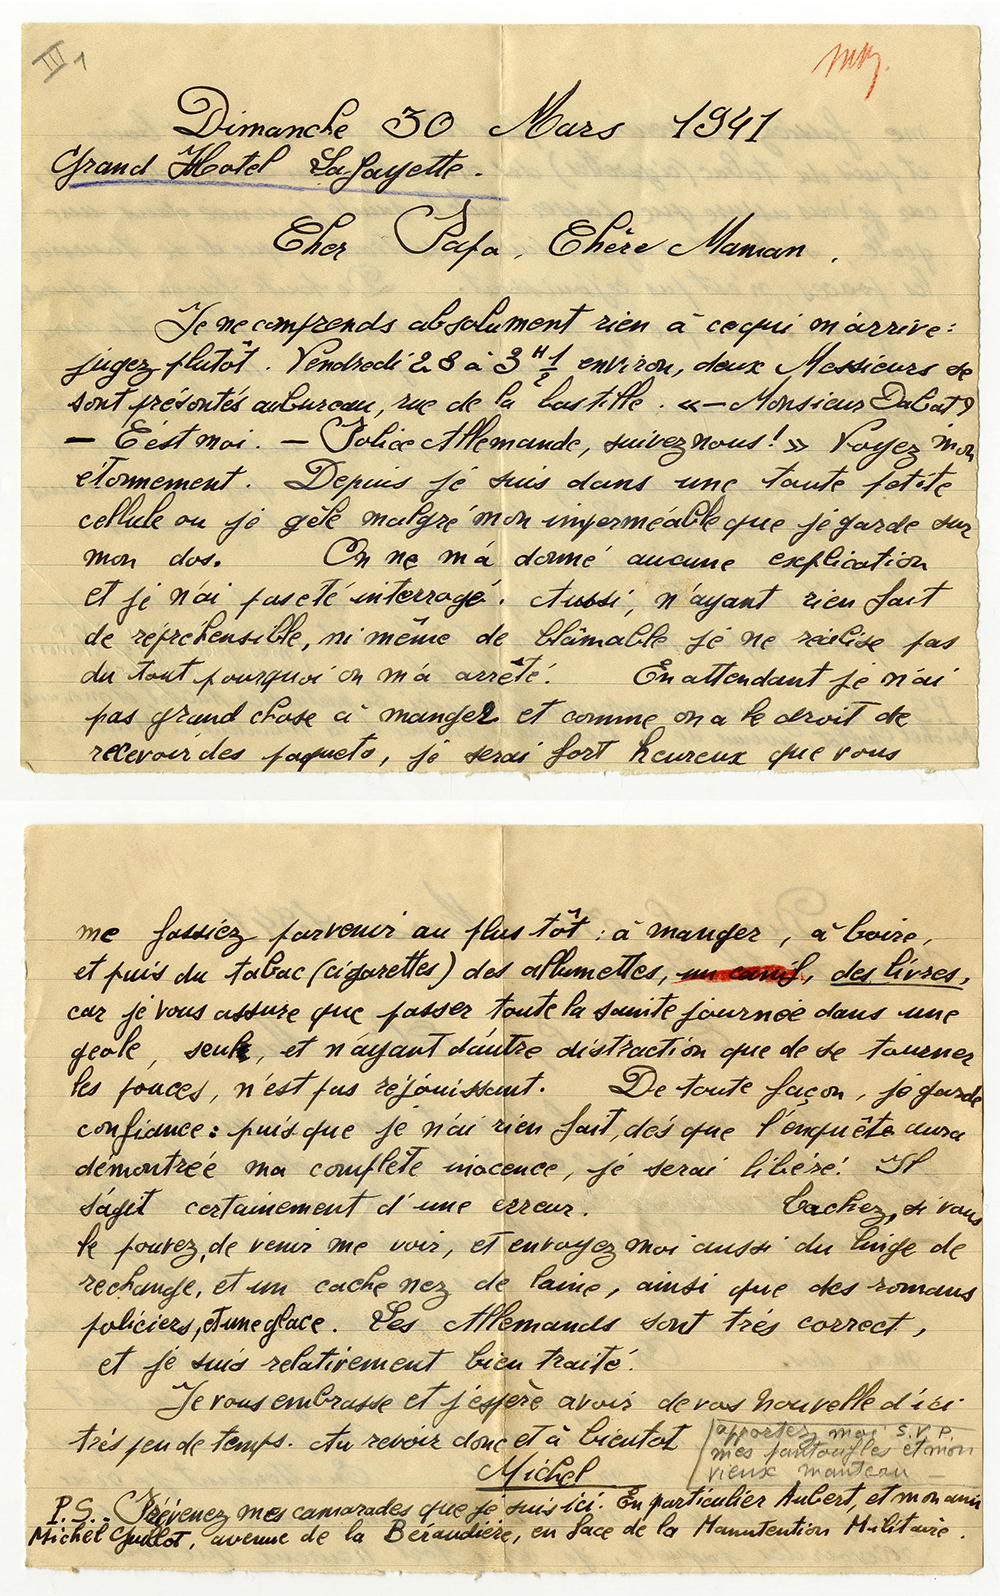 III 1
Dimanche 30 Mars 1941
Grand Hotel Lafayette.
Cher Papa, Chère Maman.
Je ne comprends absolument rien à ce qui m'arrive :
jugez plutôt. Vendredi 28 à 3 H 1/2 environ, deux Messieurs se
sont présentés au bureau, rue de la bastille. «— Monsieur Dabat?
— C'est moi. — Police Allemande, suivez nous! » Voyez mon
étonnement. Depuis je suis dans une toute petite
cellule ou je gèle malgré mon imperméable que je garde sur
mon dos. On ne m'a donné aucune explication
et je n'ai pas été interrogé. Aussi, n'ayant rien fait
de répréhensible, ni même de blâmable je ne réalise pas
du tout pourquoi on m'a arrêté. En attendant je n'ai
pas grand chose à manger et comme on a le droit de
recevoir des paquets, je serai fort heureux que vous
me fassiez parvenir au plus tôt : à manger, à boire,
et puis du tabac (cigarettes) des allumettes, un canif, des livres,
car je vous assure que passer toute la sainte journée dans une
geole, seule, et n'ayant d'autre distraction que de se tourner
les pouces, n'est pas réjouissant. De toute façon, je garde
confiance : puis que je n'ai rien fait, dés que l'enquête aura
démontrée ma complète inocence, je serai libéré! Il
s'agit certainement d'une erreur. Tachez, si vous
le pouvez, de venir me voir, et envoyez moi aussi du linge de
rechange, et un cache nez de laine, ainsi que des romans
policiers, et une glace. Les Allemands sont très correct,
et je suis relativement bien traité.
Je vous embrasse et j'espère avoir de vos nouvelle d'ici
très peu de temps. Au revoir donc et à bientot
Michel
apportez moi S.V.P.
mes pantoufles et mon
vieux manteau —
P.S. - Prévenez mes camarades que je suis ici. En particulier Aubert, et mon ami
Michel Guillot, avenue de la Béraudière, en face de la Manutention Militaire.